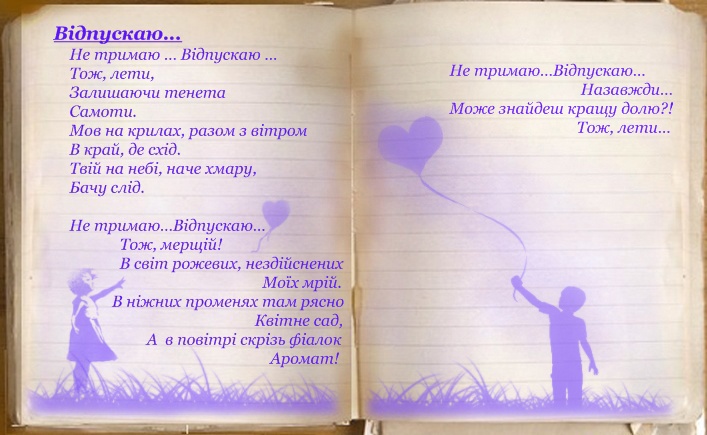 Відпускаю...
Не тримаю ... Відпускаю ...
Тож, лети,
Залишаючи тенета
Самоти.
Мов на крилах, разом з вітром
В край, де схід.
Твій на небі, наче хмару,
Бачу слід.
Не тримаю...Відпускаю...
Тож, мерщій!
В світ рожевих, нездійснених
Моїх мрій.
В ніжних променях там рясно
Квітне сад,
А в повітрі скрізь фіалок
Аромат!
Не тримаю...Відпускаю...
Назавжди...
Може знайдеш кращу долю?!
Тож, лети...